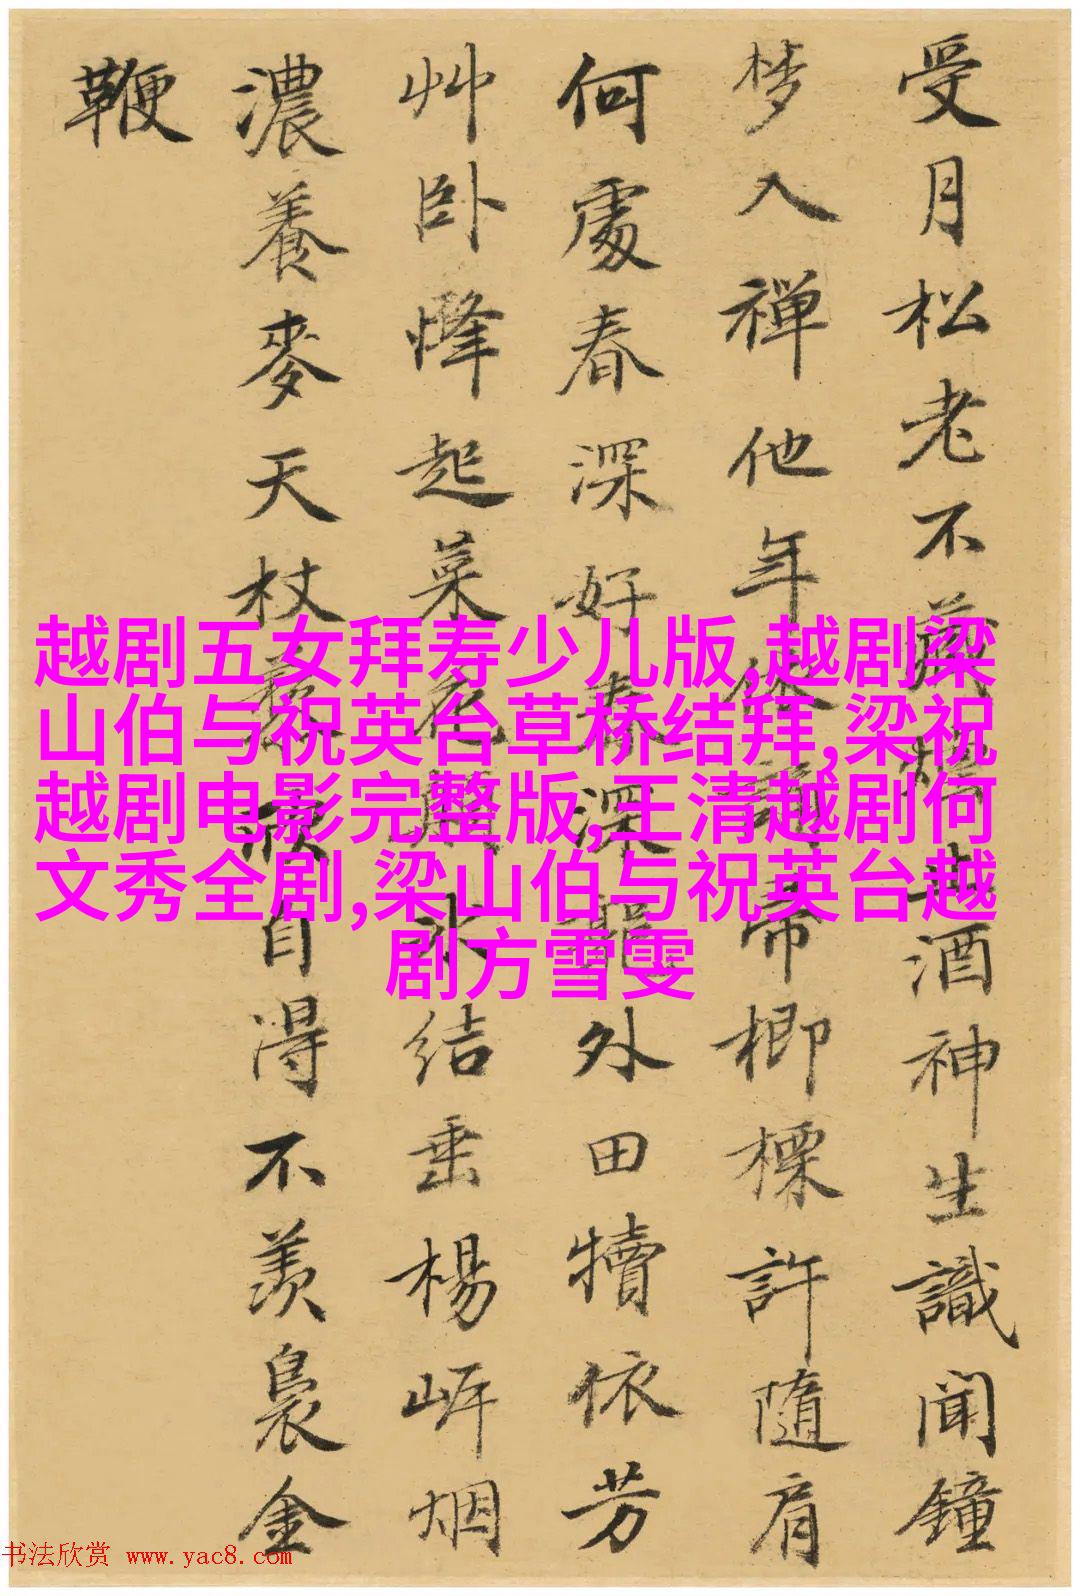 受月松老不蔵一酒神生識聞鐘
梦入禅他年帝楖標許隨肩
何處春深好春深外田犢依芳
艸卧烽起菜花水结垂楊岍烟
濃養麥天杖自淂不羨裊金
鞭
越剧五女拜寿少儿版,越剧梁
山伯与祝英台草桥结拜,梁祝
越剧电影完整版,王清越剧何
文秀全剧,梁山伯与祝英台越
剧方雪雯
书法欣赏 www.yac8.com